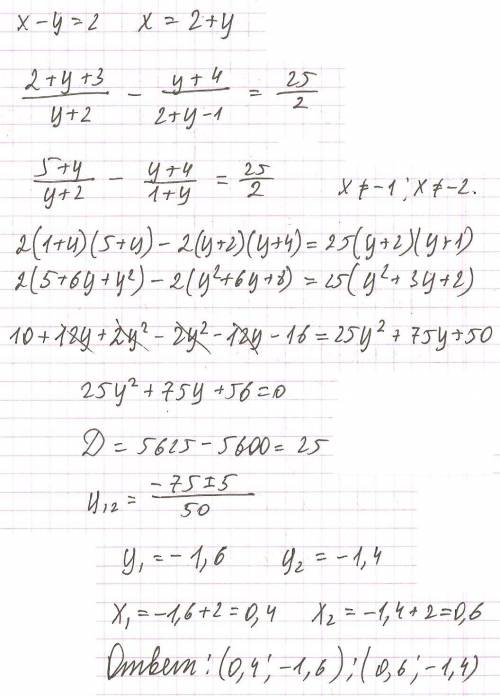 x - y = 2    x = 2 + y
(2+y+3)/(y+2) - (y+4)/(2+y-1) = 25/2
(5+y)/(y+2) - (y+4)/(1+y) = 25/2    x ≠ -1; x ≠ -2.
2(1+y)(5+y) - 2(y+2)(y+4) = 25(y+2)(y+1)
2(5+6y+y²) - 2(y²+6y+8) = 25(y²+3y+2)
10 + 12y + 2y² - 2y² - 12y - 16 = 25y² + 75y + 50
25y² + 75y + 56 = 0
D = 5625 - 5600 = 25
y₁₂ = (-75 ± 5)/50
y₁ = -1,6    y₂ = -1,4
x₁ = -1,6 + 2 = 0,4    x₂ = -1,4 + 2 = 0,6
Ответ: (0,4; -1,6); (0,6; -1,4)